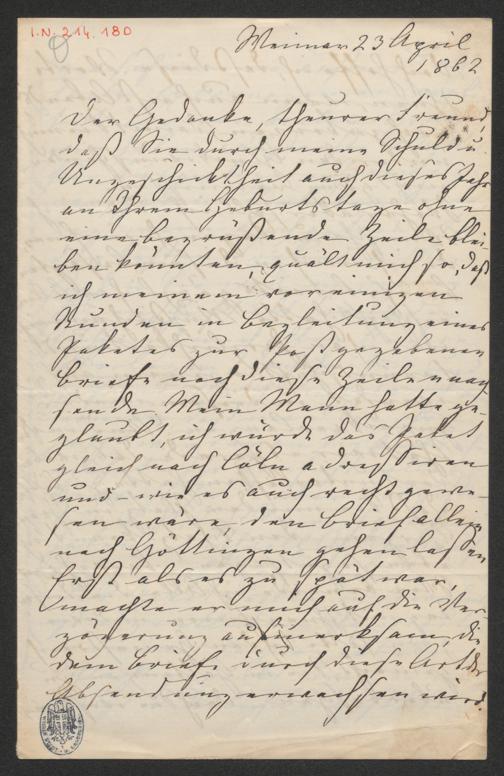 I.N. 214.180
Weimar 23 April
1862
Der Gedanke, theurer Freund,
daß Sie durch meine Schuld u
Ungeschicktheit auch dieses Jahr
an Ihrem Geburtstage ohne
eine begrüßende Zeile blei
ben könnten, quält mich so, daß
ich meinem vor einigen
Stunden in Begleitung eines
Paketes zur Post gegebenen
Briefe noch diese Zeilen nach
sende. Mein Mann hatte ge-
glaubt, ich würde das Paket
gleich nach Cöln adressiren
und – wie es auch recht gewe-
sen wäre, den Brief allein
nach Göttingen gehen lassen
Erst als es zu spät war,
machte er mich auf die Ver
zögerung aufmerksam, die
dem Briefe durch diese Art der
Absendung erwachsen wird.